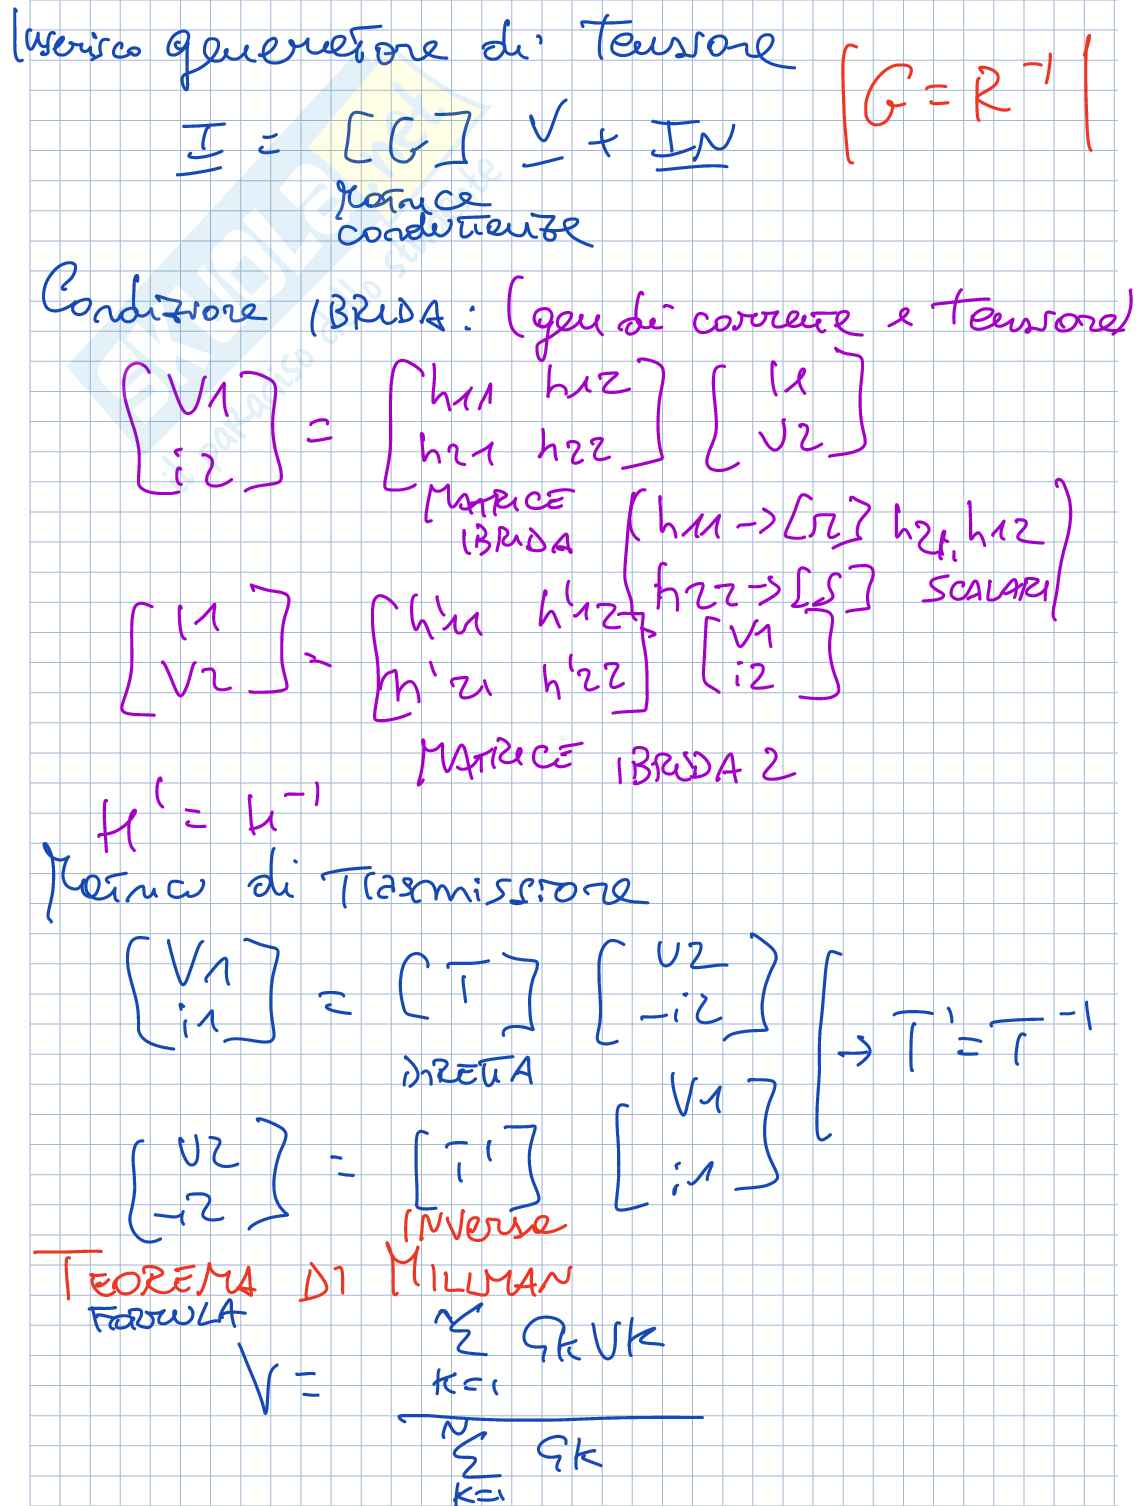 Inserisco generatore di Tensione
[G = R⁻¹]
I = [G] V + IN
Matrice
conduttanze
Condizione IBRIDA: (gen di corrente e Tensione)
[V1 i2] = [h11 h12 h21 h22] [i1 V2]
MATRICE
IBRIDA
(h11 -> [Ω] h21, h12
h22 -> [S] SCALARI)
[i1 V2] = [h'11 h'12 h'21 h'22] [V1 i2]
MATRICE IBRIDA 2
H' = H⁻¹
Matrice di Trasmissione
[V1 i1] = [T] [V2 -i2]
DIRETTA
→ T' = T⁻¹
[V2 -i2] = [T'] [V1 i1]
INVersa
TEOREMA DI MILLMAN
FORMULA
V = ∑ᴺₖ₌₁ Gk Vk / ∑ᴺₖ₌₁ Gk
SKUOLA.net
il paradiso dello studente